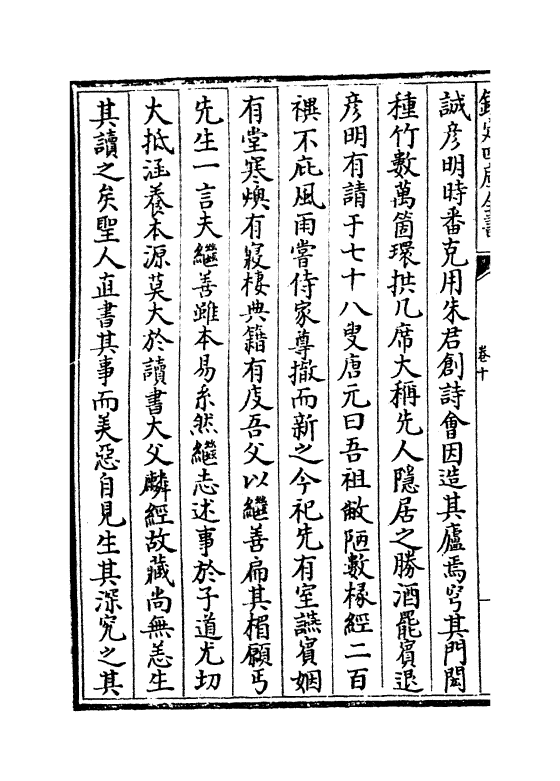 欽定四庫全書
卷十
誠彦明時番克用朱君創詩會因造其廬焉穹其門閎
種竹數萬箇環拱几席大稱先人隱居之勝酒罷賓退
彦明有請于七十八叟唐元曰吾祖敝陋數椽經二百
禩不庇風雨嘗侍家尊撤而新之今祀先有室讌賓姻
有堂寒燠有寢棲典籍有庋吾父以繼善扁其楣願丐
先生一言夫繼善雖本易系然繼志述事於子道尤切
大抵涵養本源莫大於讀書大父麟經故藏尚無恙生
其讀之矣聖人直書其事而美惡自見生其深究之其